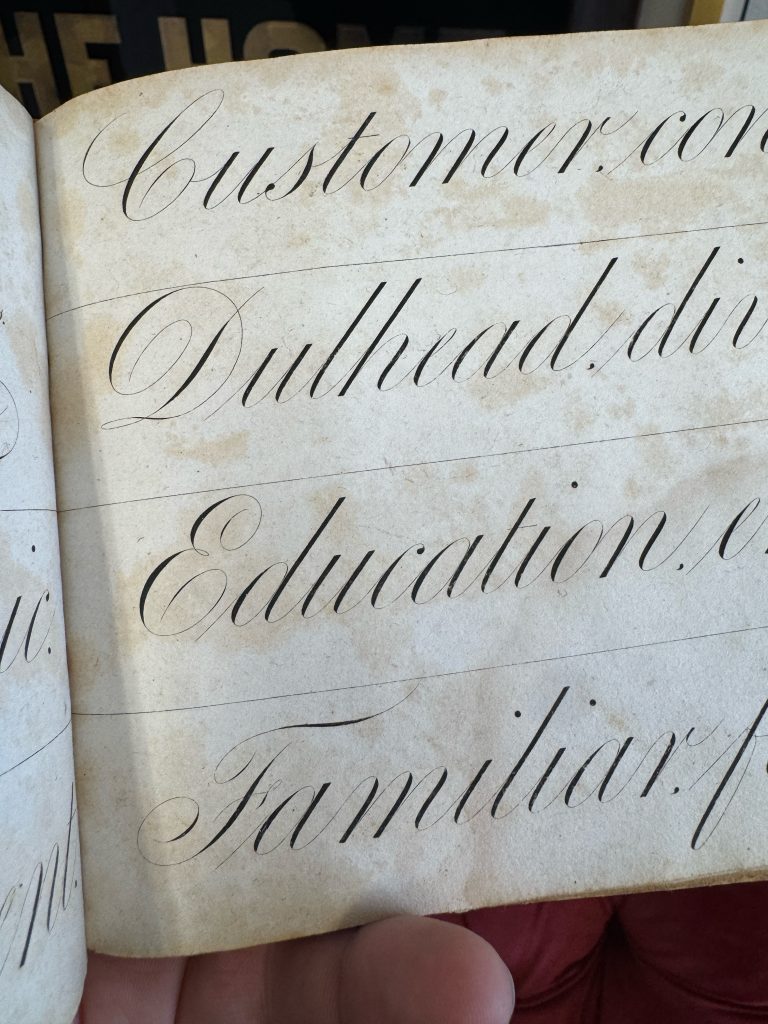 THE HOME
Customer. con
Dulhead. div
Education. e
Familiar. f
uc.
ent.